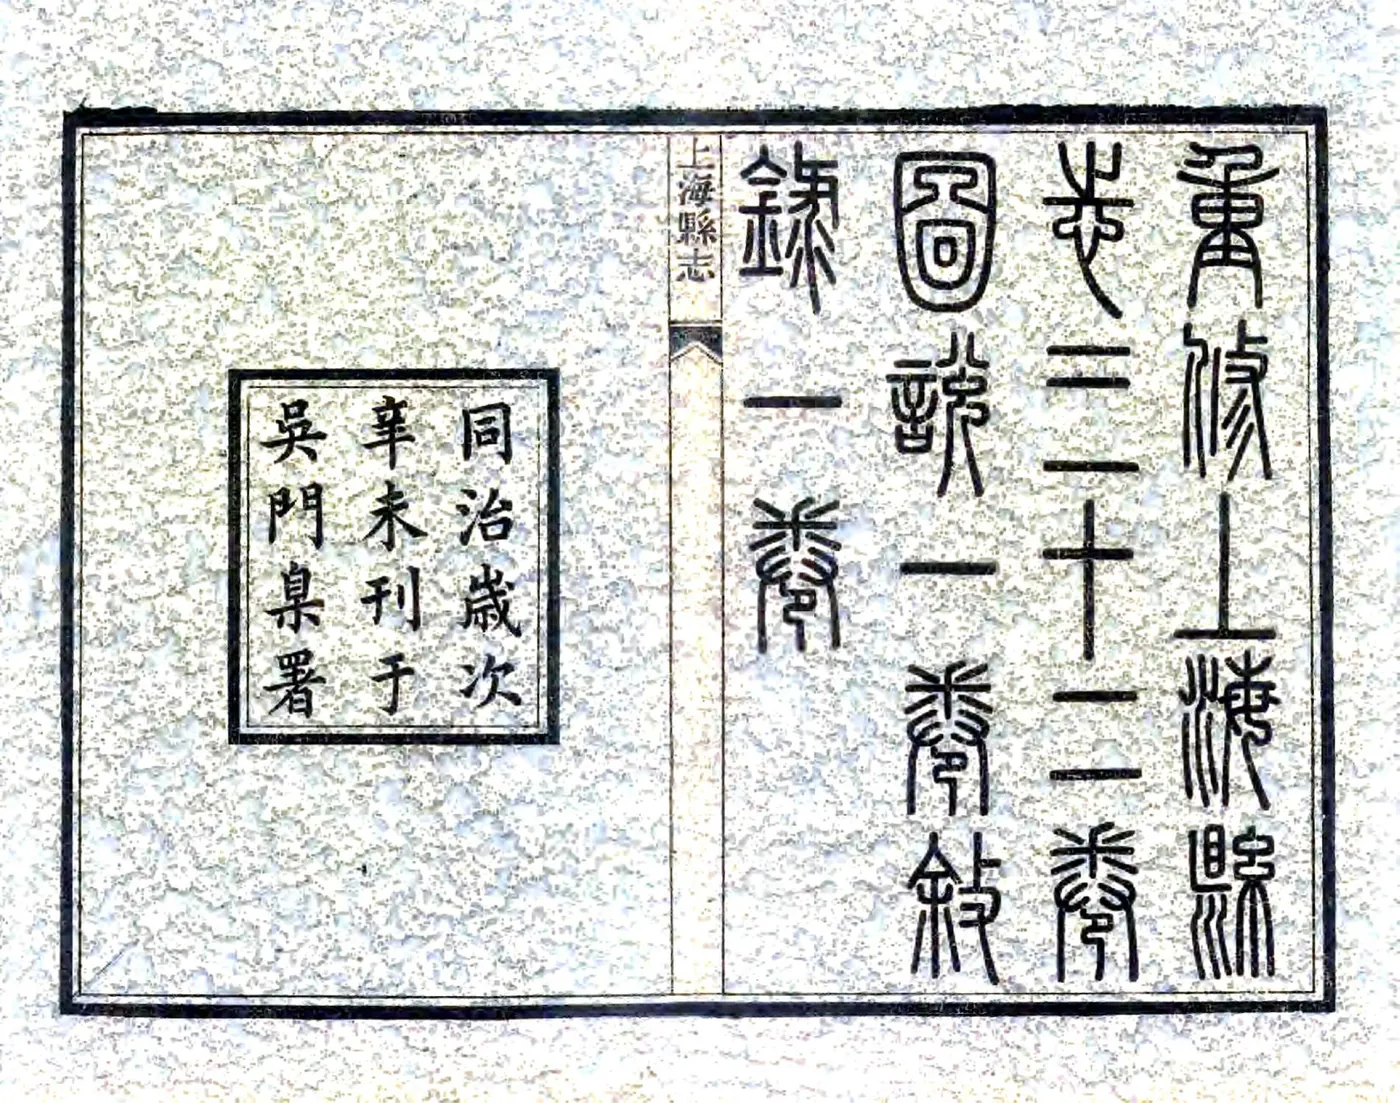 重修上海縣
志三十二卷
圖說一卷敘
錄一卷
上海縣志
同治歲次
辛未刊于
吳門臬署